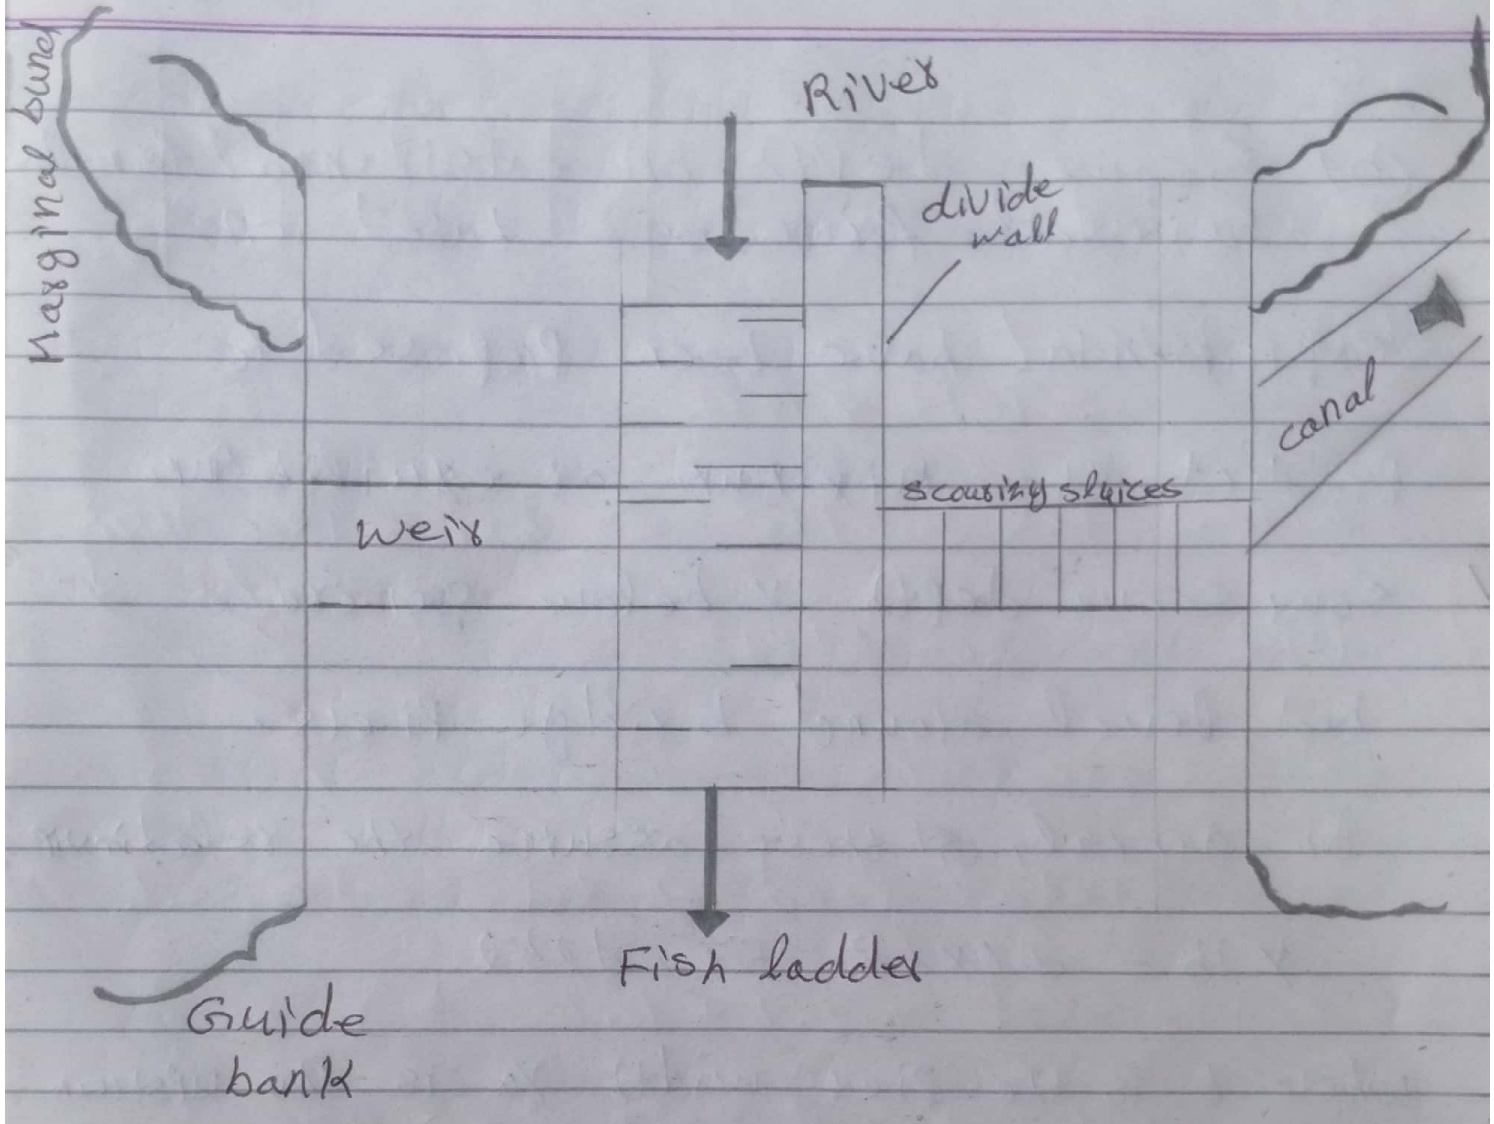 Marginal bund
River
divide
wall
canal
scouring sluices
Weir
Fish ladder
Guide
bank